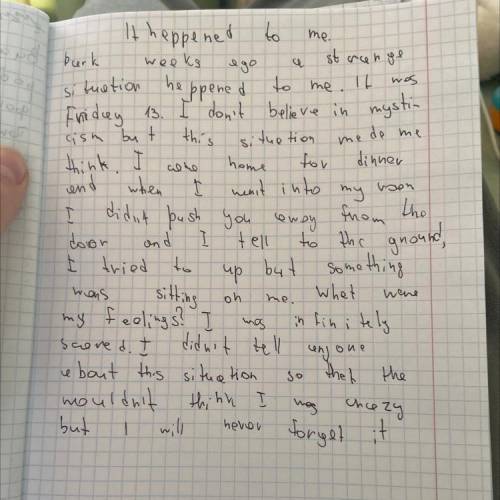 It heppened to me.
weeks ego a strange
situation heppened to me. It was
Friday 13. I don't believe in mysti-
cism but this situation mede me
think. I came home for dinner
end when I went into my room
I didn't push you away from the
door and I fell to the ground,
I tried to up but something
was sitting on me. What were
my feelings? I was infinitely
scared. I didn't tell anyone
about this situation so thet the
wouldn't think I was crazy
but I will never forget it